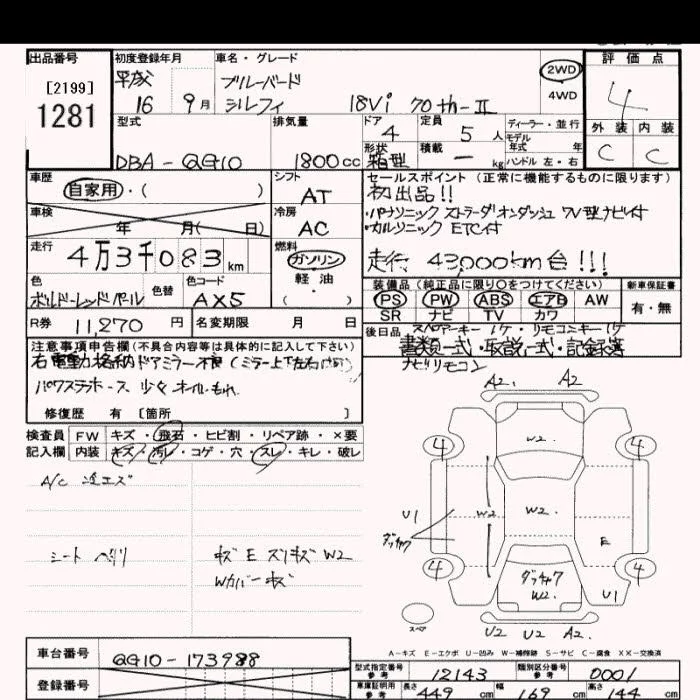 出品番号 初度登録年月 車名・グレード 評価点
[2199] 平成 ブルーバード 2WD 4
1281 16 9月 シルフィ 18Vi 70th-II 4WD
外装 内装
型式 排気量 ドア 定員 ディーラー・並行 C C
4 5人 モデル年式 年
DBA-QG10 1800cc 形状 箱型 積載 ー kg ハンドル 左・右
車歴 シフト セールスポイント(正常に機能するものに限ります)
自家用・( ) AT 初出品!!
車検 冷房 ・パナソニック ストラーダ オンダッシュ 7V型ナビ付
年 月( 日) AC ・カルソニック ETC付
走行 燃料
4万3千083km ガソリン 走行 43,000km台!!!
軽油
色 色替 色コード ( ) 装備品(純正品に限り○をつけてください) 新車保証書
ボルドーレッドパール AX5 PS PW ABS エアB AW 有・無
SR ナビ TV カワ
R券 11,270円 名変期限 月 日 後日品 スペアーキー1ケ・リモコンキー1ケ
書類一式・取説一式・記録簿
ナビリモコン
注意事項申告欄(不具合内容等は具体的に記入して下さい)
右電動格納ドアミラー不良(ミラー上下左右
パワステホース 少々オイルもれ
修復歴 有 [箇所 ]
検査員 FW キズ・飛石・ヒビ割・リペア跡・×要
記入欄 内装 キズ・汚レ・コゲ・穴・スレ・キレ・破レ
A/C
シート ヘタリ
キズ E スリキズ W2
Wカバーキズ
A2. A2
W2
4 4
U1 W2 W2.
ダッチャク E
4 4
ダッチャク
W2. U1
スペア
U2 U2 A2.
A-キズ E-エクボ U-凹み W-補修跡 S-サビ C-腐食 XX-交換済
車台番号 QG10-173988
登録番号
型式指定番号 参考 12143 類別区分番号 参考 0001
車庫証明用 参考 長さ 449 cm 幅 169 cm 高さ 144 cm